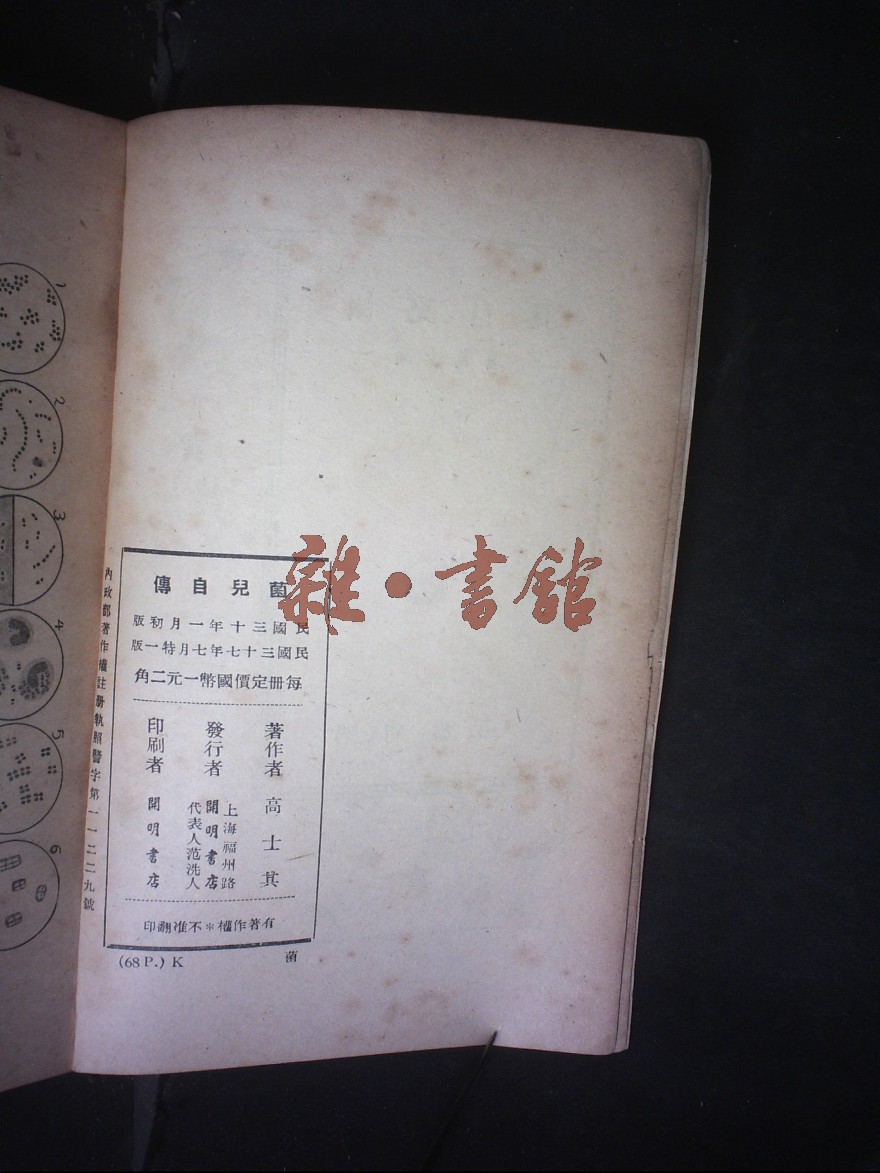 菌兒自傳
民國三十年一月初版
民國三十七年七月特一版
每冊定價國幣一元二角
著作者 高士其
發行者 上海福州路
開明書店
代表人范洗人
印刷者 開明書店
有著作權＊不准翻印
內政部著作權註冊執照警字第一一二二九號
(68 P.) K
菌
雜・書館
1
2
3
4
5
6